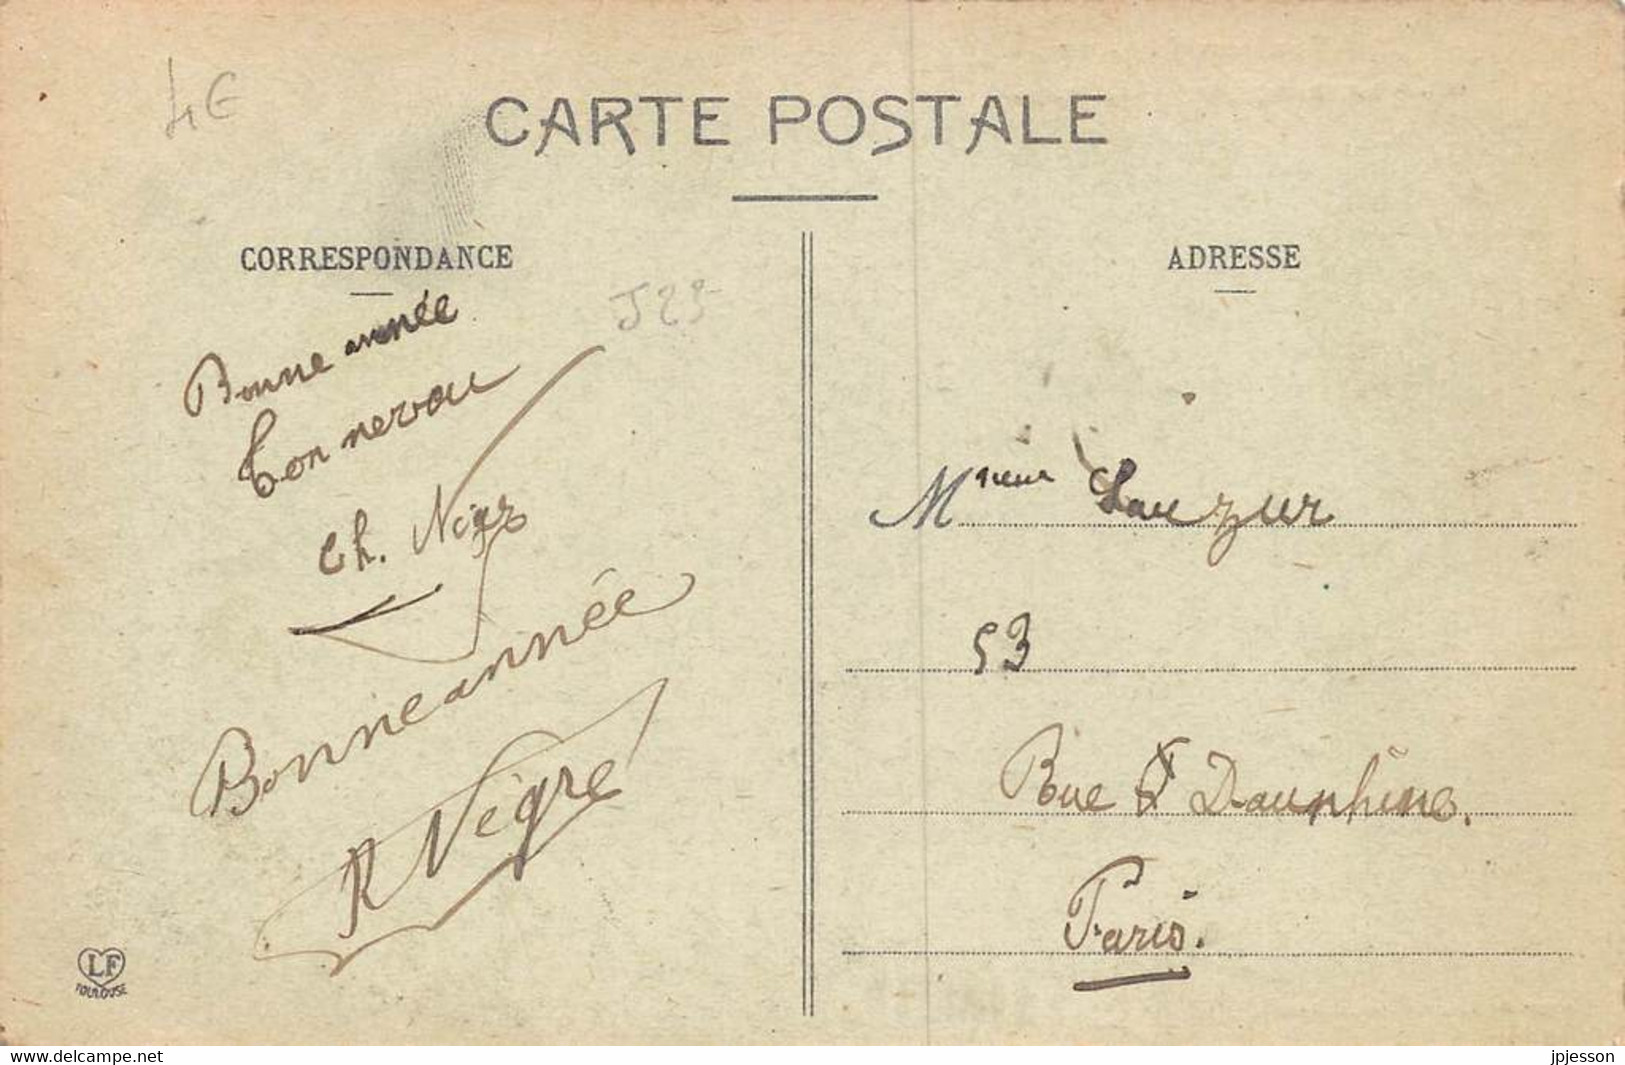 4€
CARTE POSTALE
CORRESPONDANCE
J 29
Bonne année
Ton neveu
Ch.
Bonne année
R Nègre
LF
TOULOUSE
ADRESSE
Msieur Lauzur
53
Rue Dauphine.
Paris.
www.delcampe.net
jpjesson